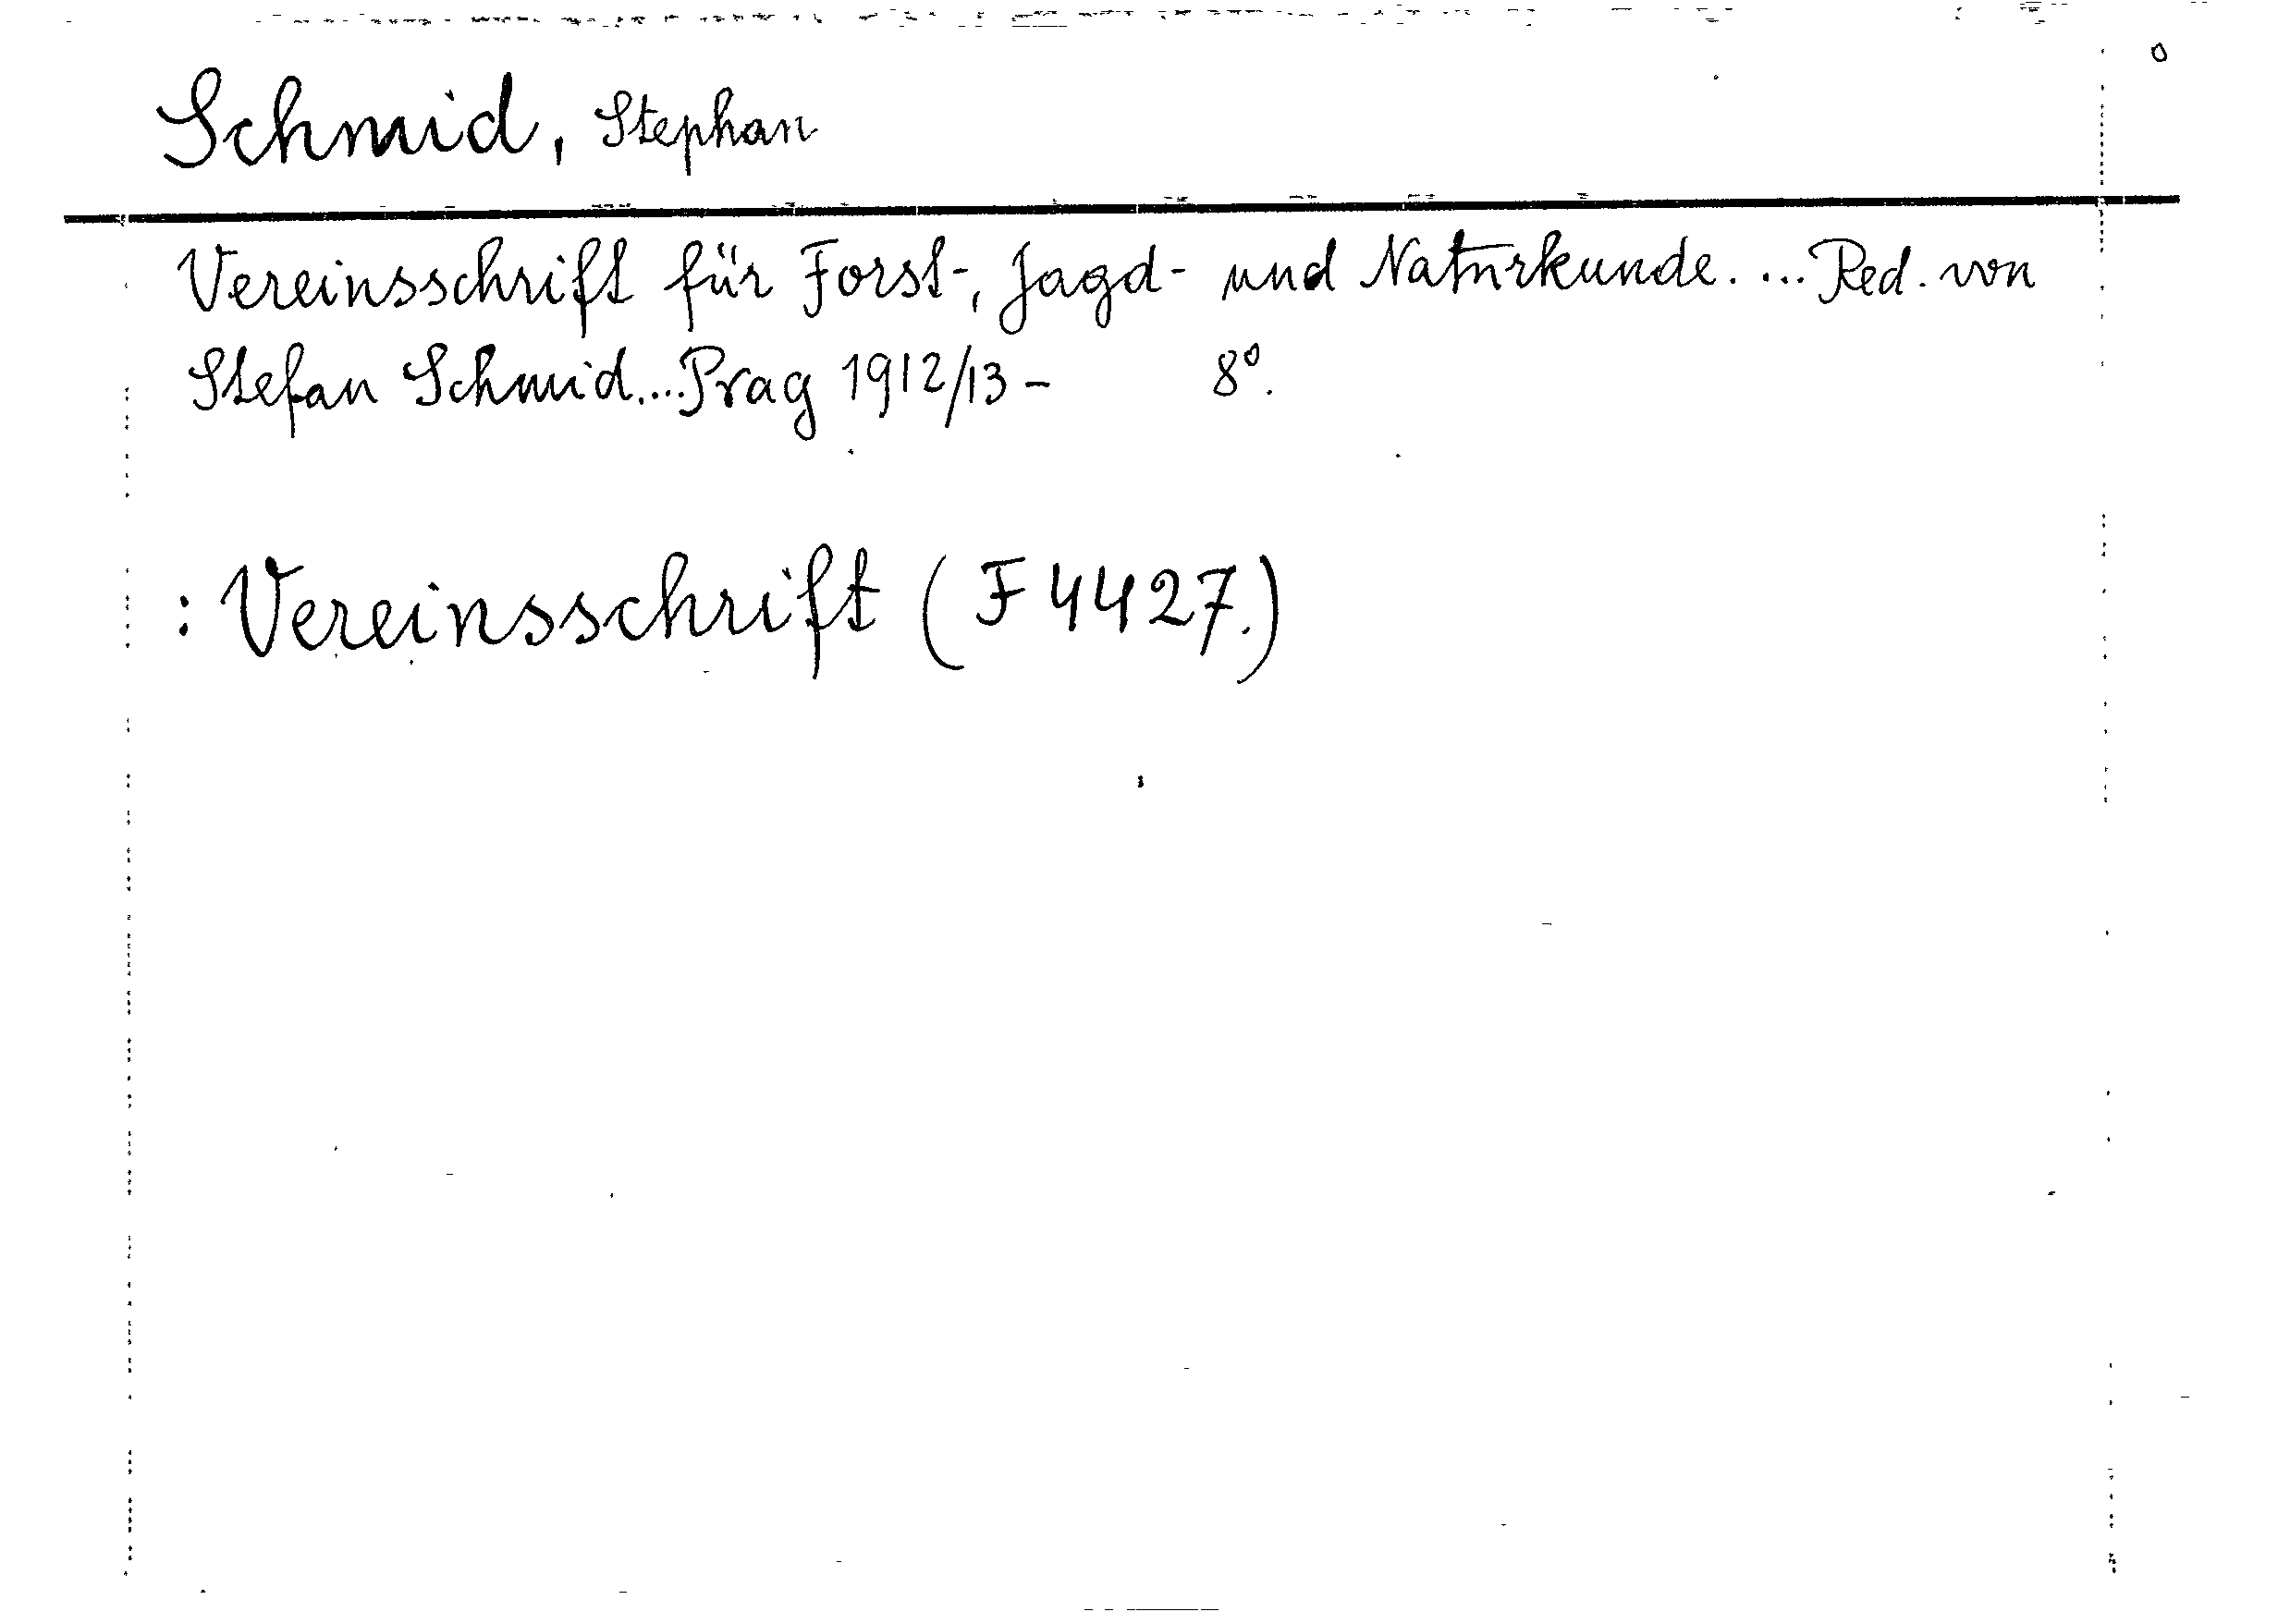 Schmid, Stephan
Vereinsschrift für Forst-, Jagd- und Naturkunde. ... Red. von
Stefan Schmid.... Prag 1912/13 - 8°.
: Vereinsschrift (F 4427.)